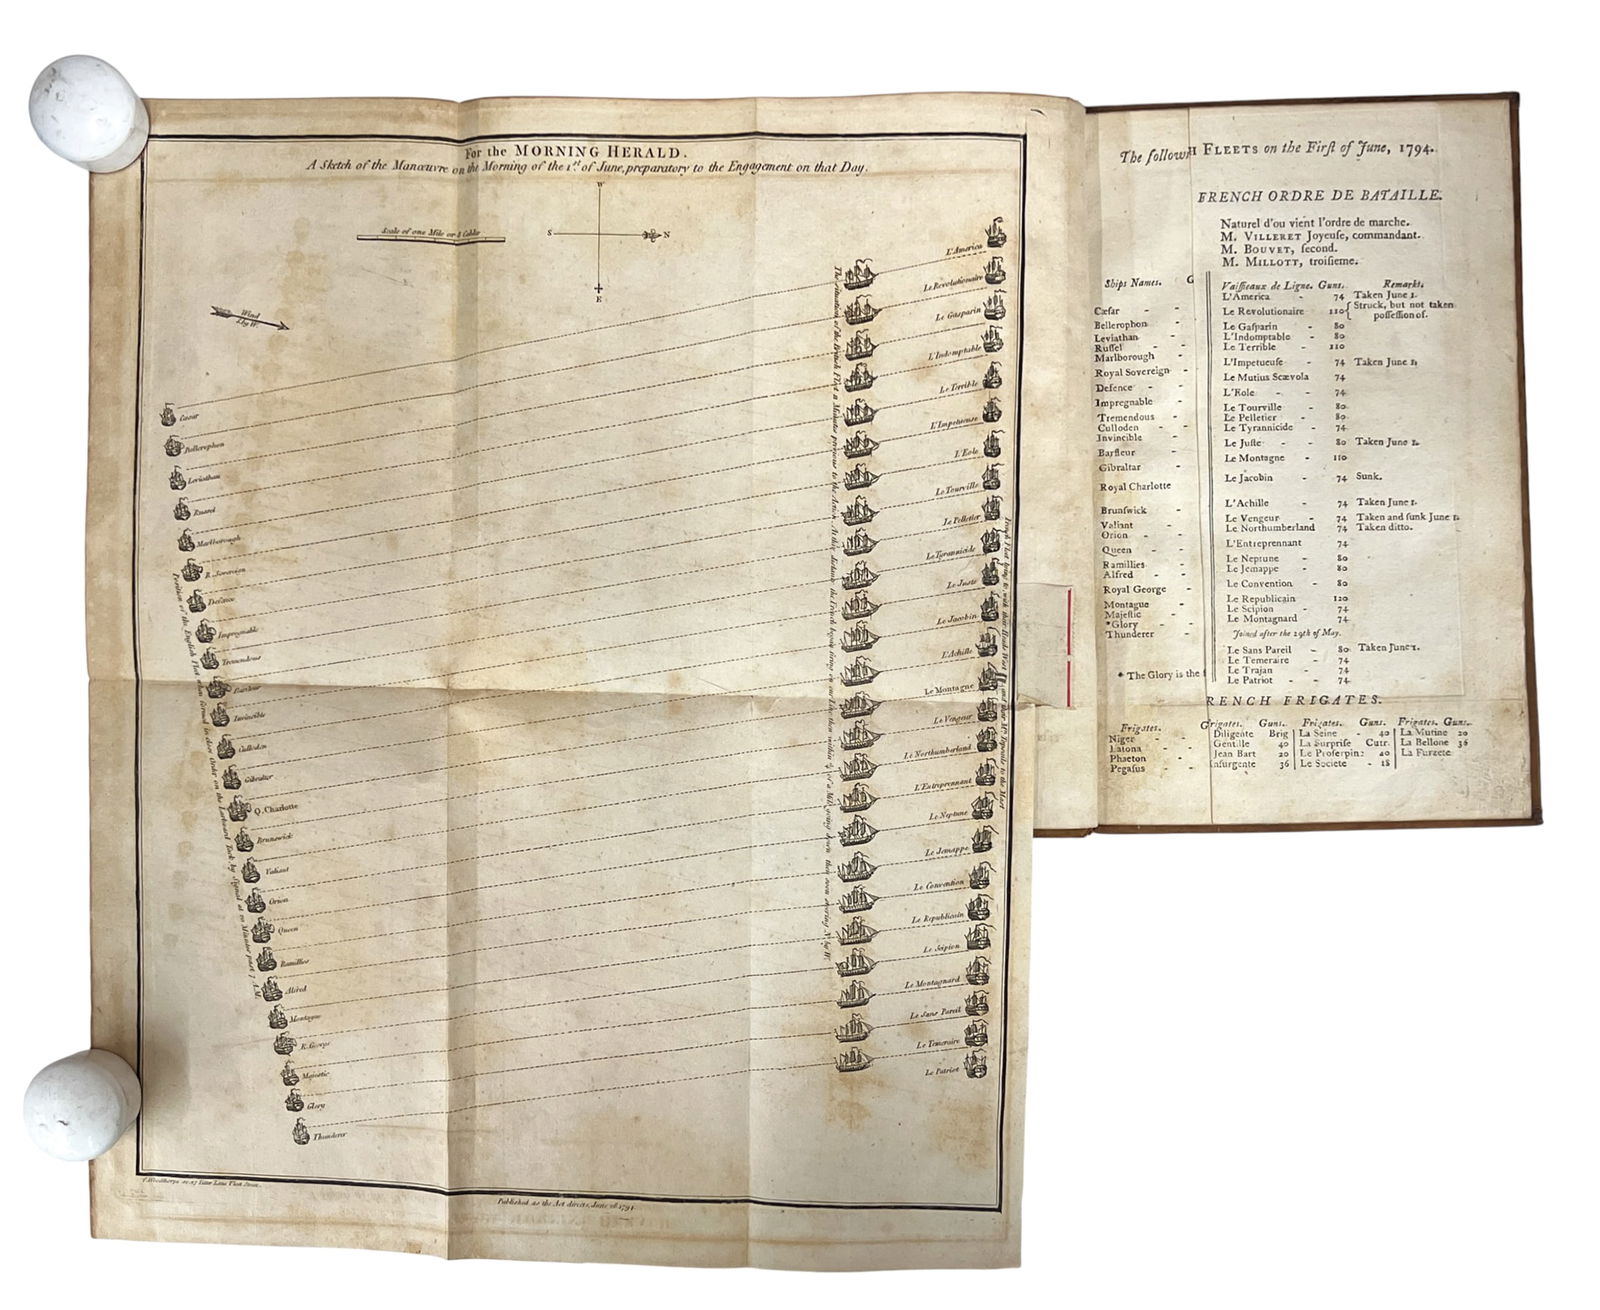 For the MORNING HERALD.
A Sketch of the Manœuvre on the Morning of the 1st of June, preparatory to the Engagement on that Day.
W
S
N
E
Scale of one Mile or 8 Cables
Wind
S by W.
Cæsar
Bellerophon
Leviathan
Russel
Marlborough
R. Sovereign
Defence
Impregnable
Tremendous
Barfleur
Invincible
Culloden
Gibralter
Q. Charlotte
Brunswick
Valiant
Orion
Queen
Ramillies
Alfred
Montague
R. George
Majestic
Glory
Thunderer
L'America
Le Revolutionaire
Le Gasparin
L'Indomptable
Le Terrible
L'Impetueuse
L'Eole
Le Tourville
Le Pelletier
Le Tyrannicide
Le Juste
Le Jacobin
L'Achille
Le Montagne
Le Vengeur
Le Northumberland
L'Entreprennant
Le Neptune
Le Jemappe
Le Convention
Le Republicain
Le Scipion
Le Montagnard
Le Sans Pareil
Le Temeraire
Le Patriot
Published as the Act directs, June 26 1794.
The follow
H FLEETS on the Firſt of June, 1794.
FRENCH ORDRE DE BATAILLE.
Naturel d'ou vient l'ordre de marche.
M. VILLERET Joyeuſe, commandant.
M. BOUVET, ſecond.
M. MILLOTT, troiſieme.
Ships Names. G
Cæſar -
Bellerophon -
Leviathan -
Ruſſel -
Marlborough -
Royal Sovereign -
Defence - -
Impregnable -
Tremendous -
Culloden - -
Invincible -
Barfleur -
Gibraltar -
Royal Charlotte
Brunſwick -
Valiant -
Orion -
Queen -
Ramillies -
Alfred - -
Royal George -
Montague -
Majeſtic -
*Glory -
Thunderer -
* The Glory is the
Vaiſſeaux de Ligne. Guns. Remarks.
L'America - 74 Taken June 1.
Le Revolutionaire 110 { Struck, but not taken poſſeſſion of.
Le Gaſparin - 80
L'Indomptable - 80
Le Terrible - 110
L'Impetueuſe - 74 Taken June 1.
Le Mutius Scævola 74
L'Eole - - 74
Le Tourville - 80
Le Pelletier - 80
Le Tyrannicide - 74
Le Juſte - - 80 Taken June 1.
Le Montagne - 110
Le Jacobin - 74 Sunk.
L'Achille - 74 Taken June 1.
Le Vengeur - 74 Taken and ſunk June 1.
Le Northumberland 74 Taken ditto.
L'Entreprennant 74
Le Neptune - 80
Le Jemappe - 80
Le Convention - 80
Le Republicain 120
Le Scipion - 74
Le Montagnard 74
Joined after the 29th of May.
Le Sans Pareil - 80 Taken June 1.
Le Temeraire - 74
Le Trajan - 74
Le Patriot - - 74
RENCH FRIGATES.
Frigates.
Niger - -
Latona - -
Phaeton -
Pegaſus - -
Frigates. Guns. Frigates. Guns. Frigates. Guns.
Diligente Brig La Seine - 40 La Mutine 20
Gentille 40 La Surpriſe Cutr. La Bellone 36
Jean Bart 20 Le Proſerpine 40 La Furzete
Inſurgente 36 Le Societe - 18